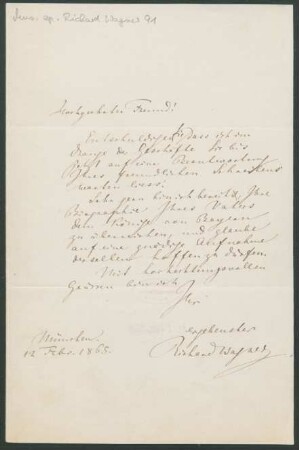 Hochgeehrter Freund!
Entschuldigen Sie dass ich im
Drange der Geschäfte Sie bis
jetzt auf eine Beantwortung
Ihres freundlichen Schreibens
warten liess.
Sehr gern bin ich bereit die
Biographie Ihres Vaters
dem Könige von Bayern
zu überreichen, und glaube
auf eine gnädige Aufnahme
derselben hoffen zu dürfen.
Mit hochachtungsvollen
Grüssen bin ich
Ihr
ergebenster
Richard Wagner
München
12 Febr. 1865.